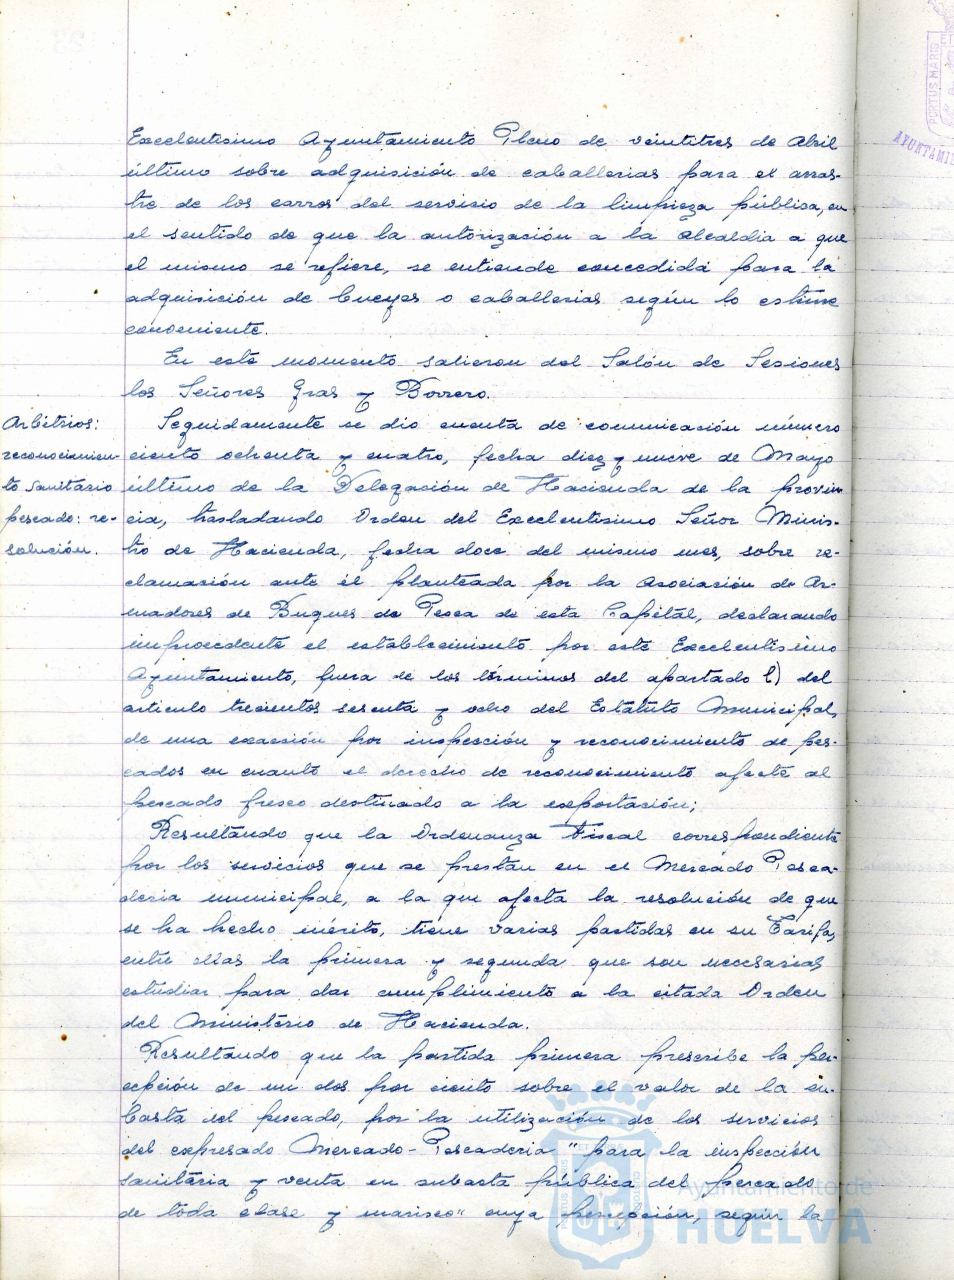 Excelentisimo Ayuntamiento Pleno de veintitres de Abril
último sobre adquisición de caballerias para el arras-
tre de los carros del servicio de la limpieza pública, en
el sentido de que la autorización a la Alcaldia a que
el mismo se refiere, se entiende concedida para la
adquisición de bueyes o caballerias según lo estime
conveniente.
En este momento salieron del Salón de Sesiones
los Señores Gras y Borrero.
Arbitrios:
reconocimien-
to sanitario
pescado: re-
solución.
Seguidamente se dio cuenta de comunicación número
ciento ochenta y cuatro, fecha diez y nueve de Mayo
último de la Delegación de Hacienda de la provin-
cia, trasladando Orden del Excelentisimo Señor Minis-
tro de Hacienda, fecha doce del mismo mes, sobre re-
clamación ante él planteada por la Asociación de Ar-
madores de Buques de Pesca de esta Capital, declarando
improcedente el establecimiento por este Excelentisimo
Ayuntamiento, fuera de los términos del apartado l) del
articulo trecientos sesenta y ocho del Estatuto Municipal,
de una exacción por inspección y reconocimiento de pes-
cados en cuanto el derecho de reconocimiento afecte al
pescado fresco destinado a la exportación;
Resultando que la Ordenanza Fiscal correspondiente
por los servicios que se prestan en el Mercado Pesca-
deria municipal, a la que afecta la resolución de que
se ha hecho mérito, tiene varias partidas en su Tarifa,
entre ellas la primera y segunda que son necesarias
estudiar para dar cumplimiento a la citada Orden
del Ministerio de Hacienda.
Resultando que la partida primera prescribe la per-
cepción de un dos por ciento sobre el valor de la su-
basta del pescado, por la utilización de los servicios
del expresado Mercado-Pescaderia "para la inspección
sanitaria y venta en subasta pública del pescado
de toda clase y marisco" cuya percepción, según la
PORTUS MARIS
AYUNTAMIE
Ayuntamiento de
HUELVA